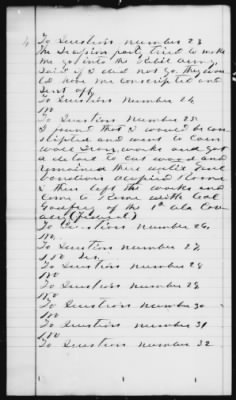 4
To Question number 23
The Seceson party tried to make
me go into the Rebel army,
Said if I did not go they wou
ld have me conscripted and
Sent off
To Question Number 24
no
To Question Number 25
I found that I would be con
scripted and went to Corn
wall Iron works and got
a detail to cut wood and
remained there until Just
before Rome
I then left the works and
Come to Rome with Col
Godfrey of the 1st Ala Cav
alry (Federal)
To Question Number 26
no.
To Question Number 27
no Sir,
To Question Number 28
no
To Question Number 29
no
To Question Number 30
no
To Question Number 31
no
To Question Number 32